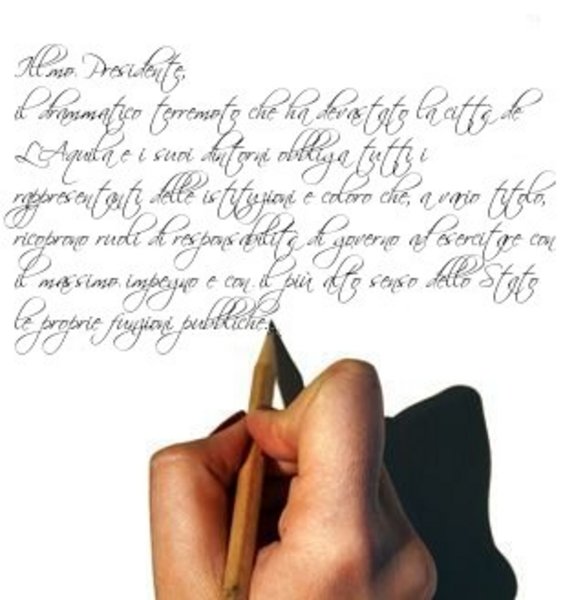 Ill.mo. Presidente,
il drammatico terremoto che ha devastato la città de
L'Aquila e i suoi dintorni obbliga tutti i
rappresentanti delle istituzioni e coloro che, a vario titolo,
ricoprono ruoli di responsabilità di governo ad esercitare con
il massimo impegno e con il più alto senso dello Stato
le proprie funzioni pubbliche.